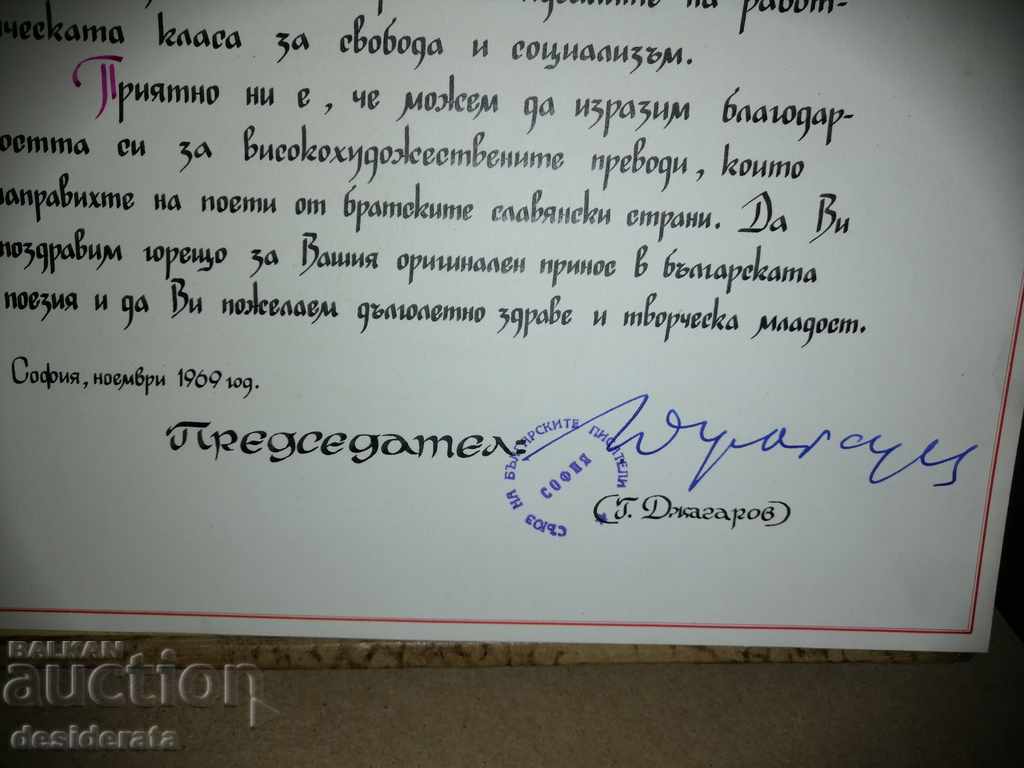 на работ-
ческата класа за свобода и социализъм.
Приятно ни е, че можем да изразим благодар-
остта си за високохудожествените преводи, които
направихте на поети от братските славянски страни. Да Ви
поздравим горещо за Вашия оригинален принос в българската
поезия и да Ви пожелаем дълголетно здраве и творческа младост.
София, ноември 1969 год.
Председател:
СЪЮЗ НА БЪЛГАРСКИТЕ ПИСАТЕЛИ
СОФИЯ
(Г. Джагаров)
BALKAN
auction
desiderata